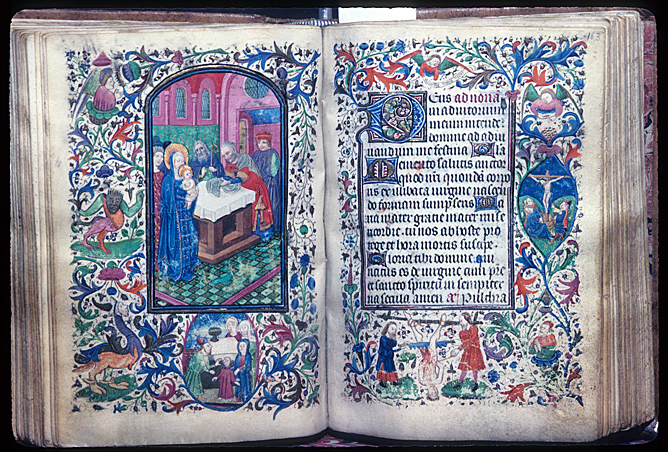 Deus ad nona
in adiutorium
meum intende
domine ad adiu
uandum me festina Gl'a
Memento salutis auctor
qd nri quondā corpo
ris ex illibata uirgine nascen
do formam sumpseris Ma
ria mater gratie mater mise
ricordie tu nos ab hoste pro
tege et hora mortis suscipe
Gloria tibi domine qui
natus es de uirgine cum pre
sancto spiritu in sempiter
na secula amen a Pulchra